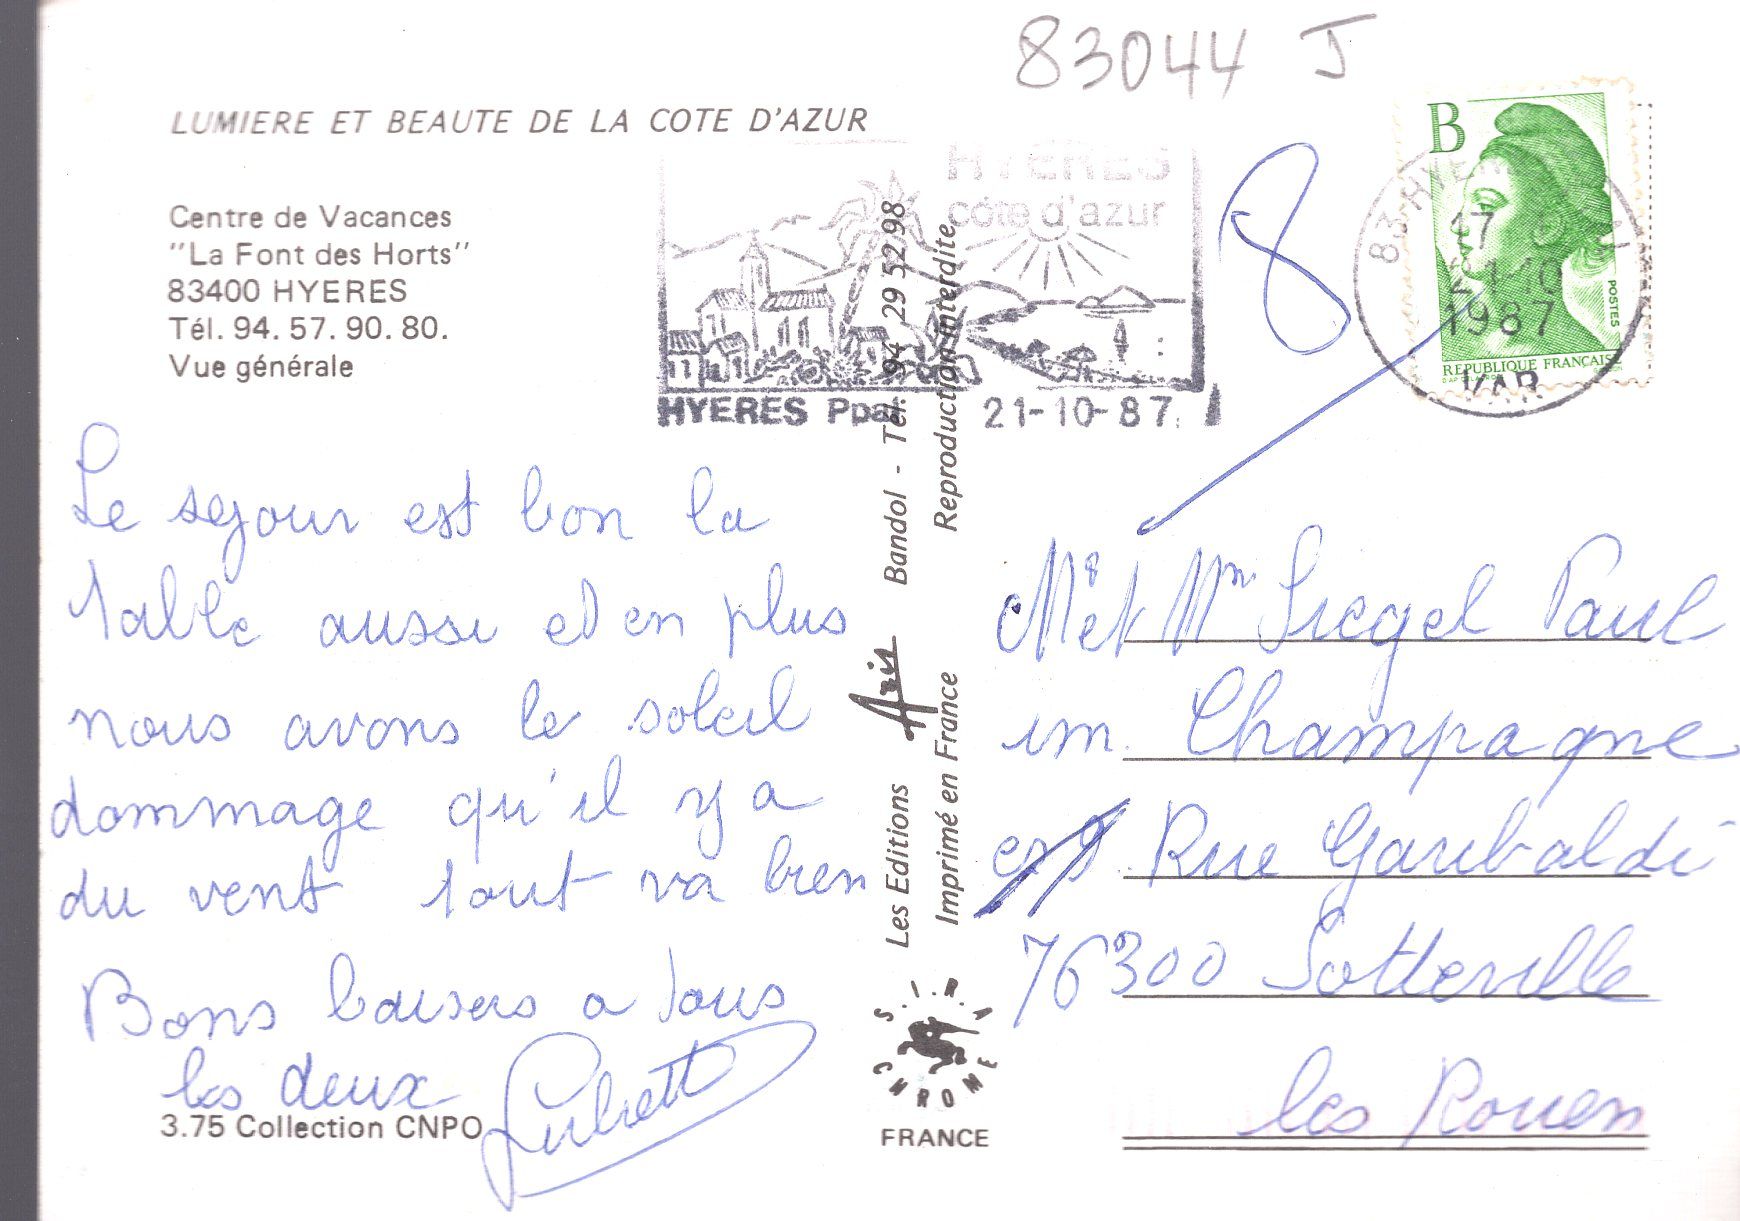 83044 J
LUMIERE ET BEAUTE DE LA COTE D'AZUR
Centre de Vacances
"La Font des Horts"
83400 HYERES
Tél. 94. 57. 90. 80.
Vue générale
HYERES
côte d'azur
HYERES Ppal 21-10-87
B
POSTES
REPUBLIQUE FRANÇAISE
83 HYERES
17 H
21-10
1987
VAR
8
Le sejour est bon la
table aussi et en plus
nous avons le soleil
dommage qu'il y a
du vent tout va bien
Bons baisers a tous
les deux
3.75 Collection CNPO
Les Editions Aris Bandol - Tél. 94 29 52 98
Imprimé en France Reproduction interdite
S.I.R.A
CHROME
FRANCE
Mr et Mme Siegel Paul
im. Champagne
Rue Garibaldi
76300 Sotteville
les Rouen